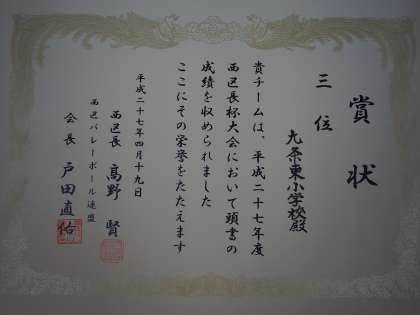 賞状
三位
九条東小学校殿
貴チームは、平成二十七年度
西区長杯大会において頭書の
成績を収められました
ここにその栄誉をたたえます
平成二十七年四月十九日
西区長 高野 賢
西区バレーボール連盟
会長 戸田直佑